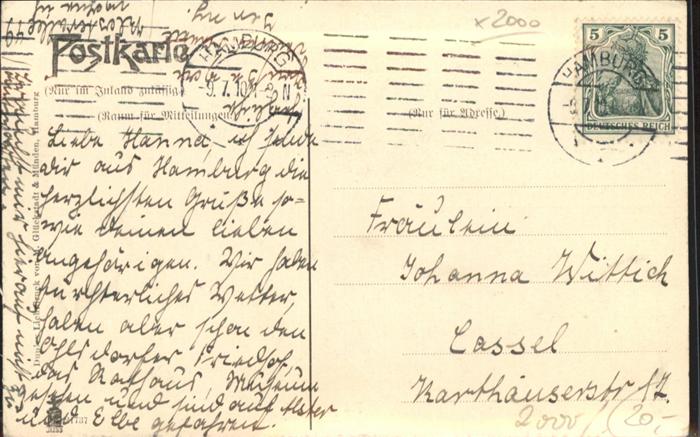 Postkarte
(Nur im Inland zulässig)
(Raum für Mitteilungen)
(Nur für Adresse.)
x 2000
HAMBURG
9.7.10
HAMBURG
5 5
DEUTSCHES REICH
Liebe Hanna, ich sende
dir aus Hamburg die
herzlichsten Grüße so-
wie deinen lieben
Angehörigen. Wir haben
fürchterliches Wetter,
haben aber schon den
Ohlsdorfer Friedhof,
das Rathaus, Museum
gesehen und sind auf Alster
und Elbe gefahren.
Fräulein
Johanna Wittich
Cassel
Karthäuserstr
2000 / 20,-
Lichtdruck von Glückstadt & Münden, Hamburg